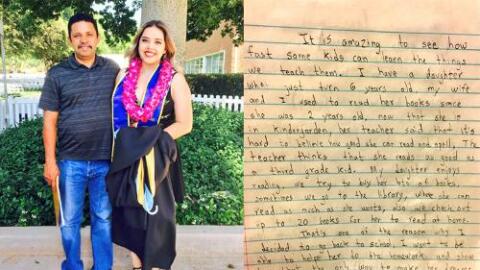 It is amazing to see how
fast some kids can learn the things
we teach them. I have a daughter
who just turn 6 years old. my wife
and I used to read her books since
she was 2 years old, now that she is
in kindergarden, her teacher said that it's
hard to believe how good she can read and spell, The
teacher thinks that she reads as good as
a third grade kid. My daughter enjoys
reading, we try to buy her lots of books,
sometimes we go to the library, where she can
read as much as she wants, also we check out
up to 20 books for her to read at home.
That's one of the reason why I
decided to go back to school, I want to be
able to help her to the homework and show
that the only way to make our dreams